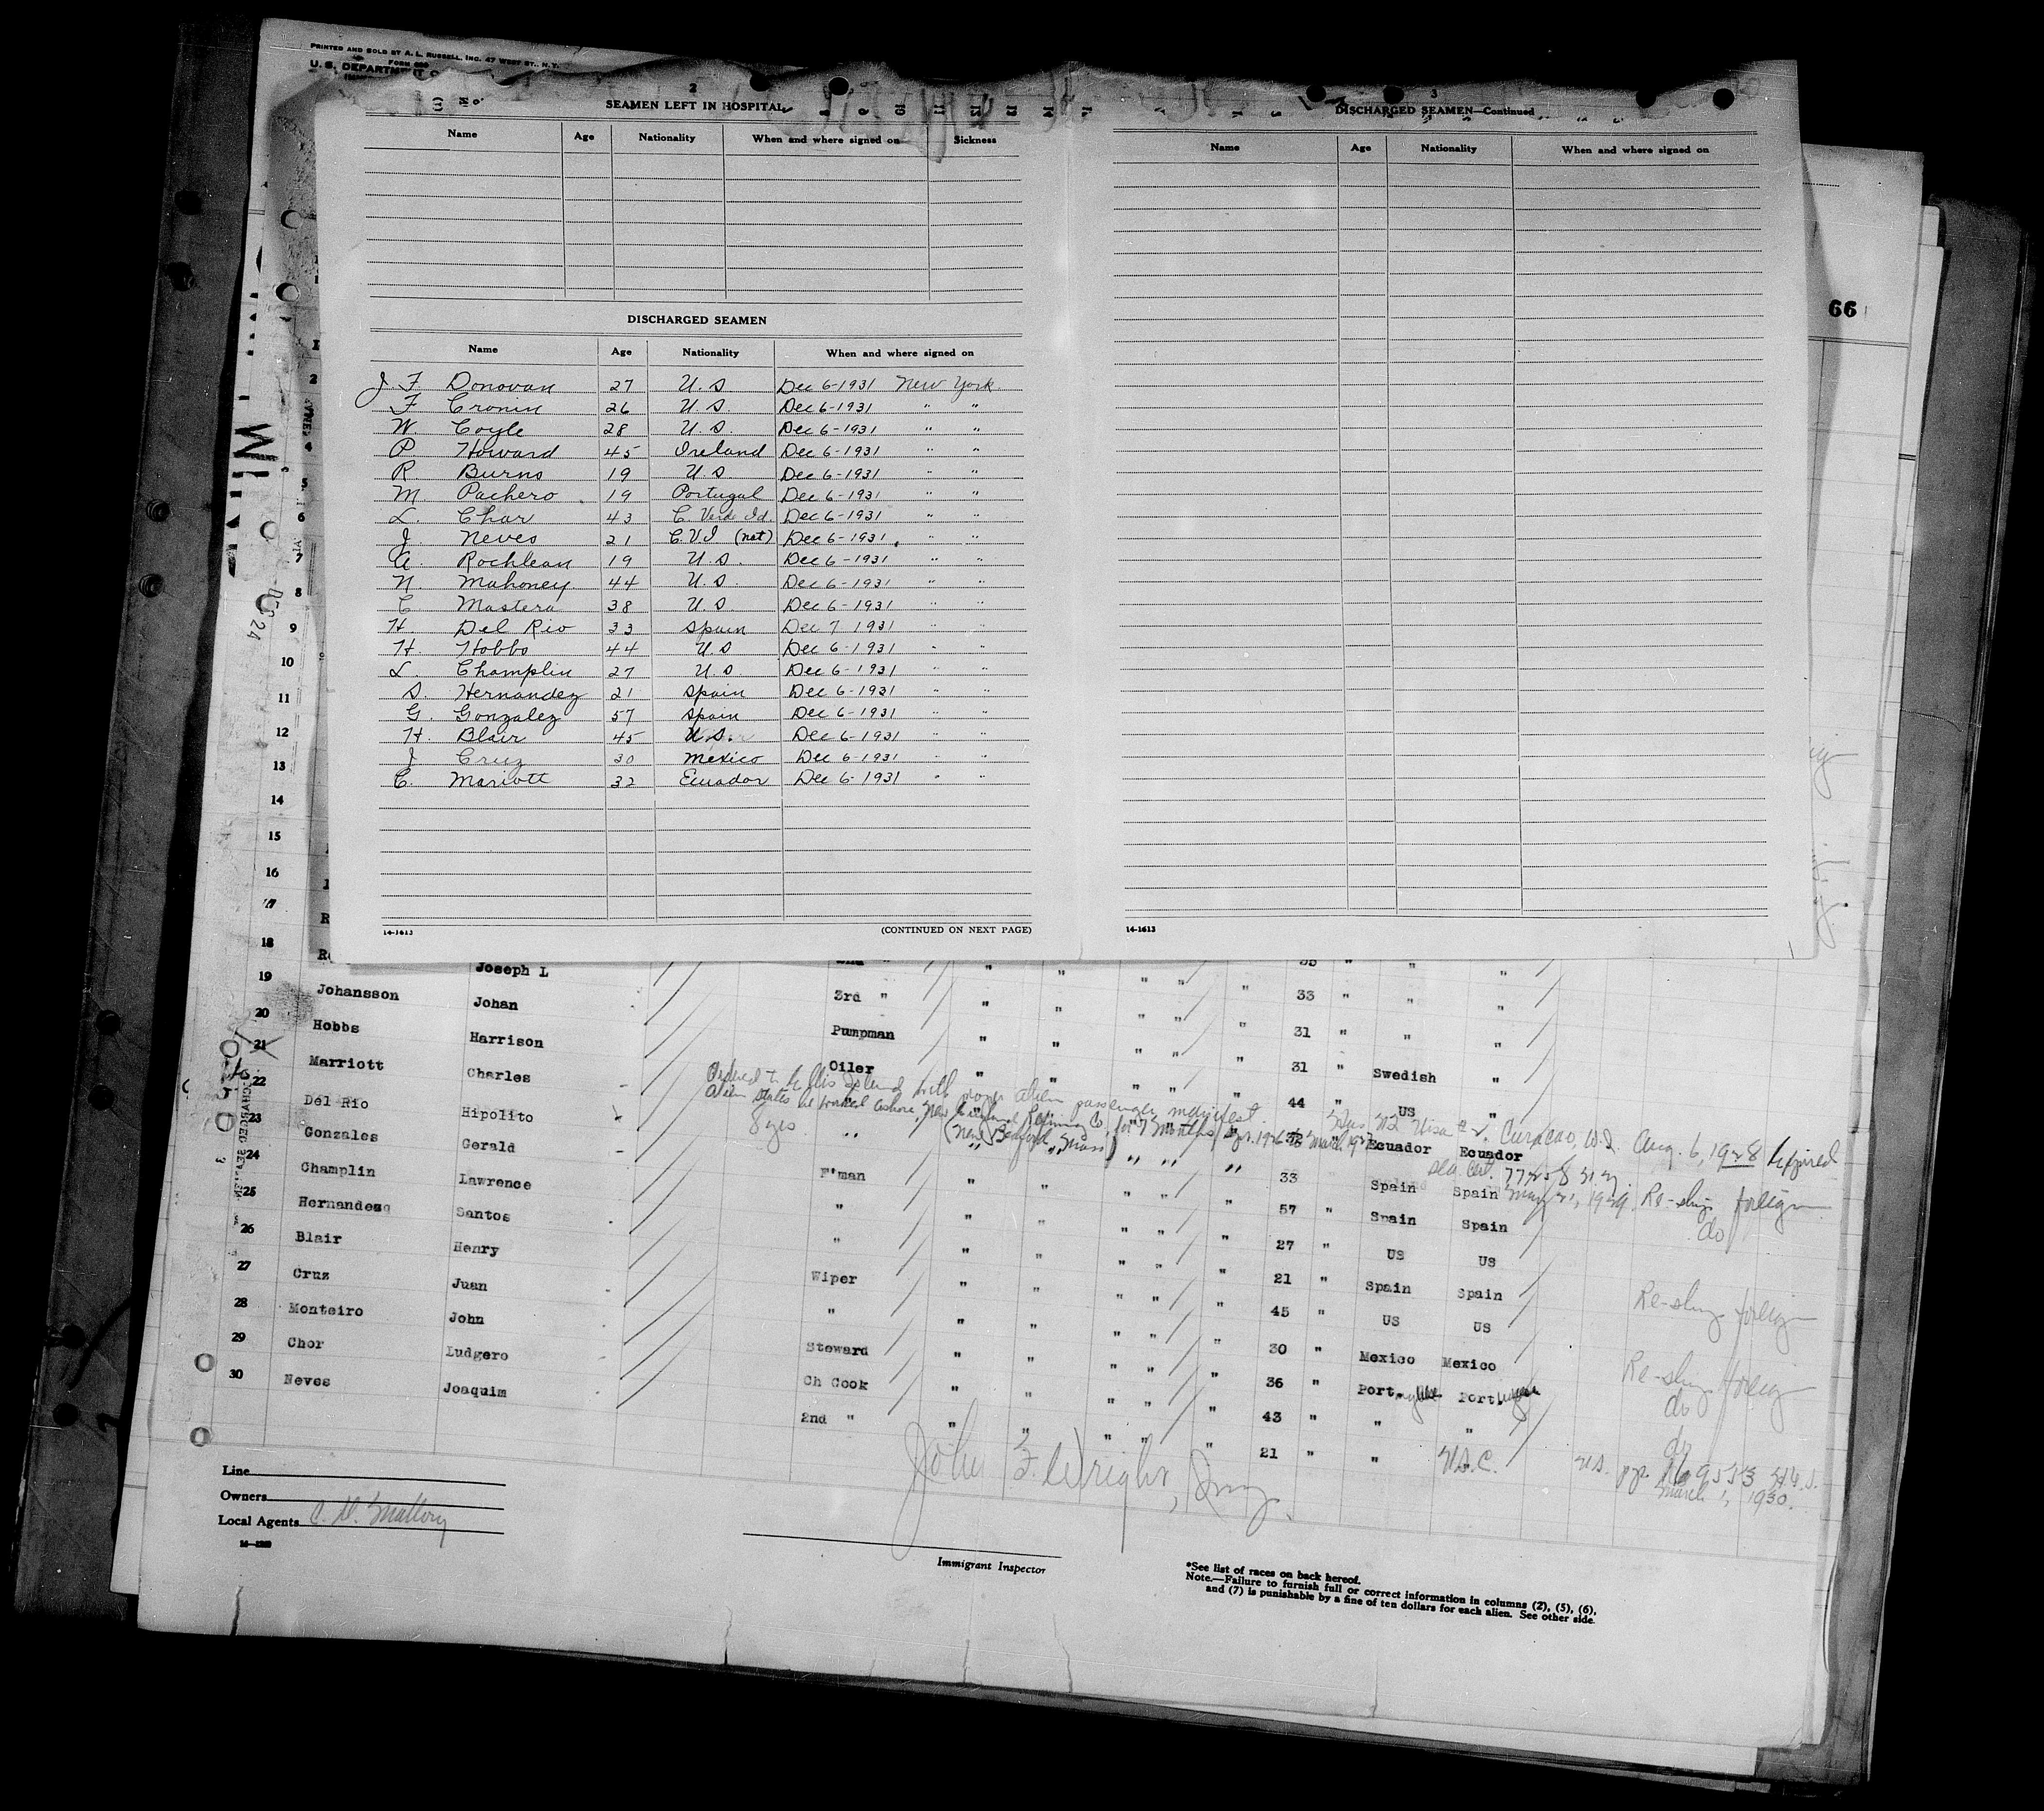 PRINTED AND SOLD BY A. L. RUSSELL, INC. 47 WEST ST., N. Y.
U. S. DEPARTMENT
2
SEAMEN LEFT IN HOSPITAL
Name Age Nationality When and where signed on Sickness
DISCHARGED SEAMEN
Name Age Nationality When and where signed on
J. F. Donovan 27 U. S. Dec 6-1931 New York
F Cronin 26 U. S. Dec 6-1931 " "
W. Coyle 28 U. S. Dec 6-1931 " "
P Howard 45 Ireland Dec 6-1931 " "
R Burns 19 U. S. Dec 6-1931 " "
M Pachero 19 Portugal Dec 6-1931 " "
L. Chor 43 C. Verde Id. Dec 6-1931 " "
J. Neves 21 C.V.I. (nat) Dec 6-1931 " "
A. Rochleau 19 U. S. Dec 6-1931 " "
N. Mahoney 44 U. S. Dec 6-1931 " "
C. Mastera 38 U. S. Dec 6-1931 " "
H. Del Rio 33 Spain Dec 7 1931 " "
H. Hobbs 44 U S Dec 6-1931 " "
L. Champlin 27 U. S. Dec 6-1931 " "
S. Hernandez 21 Spain Dec 6-1931 " "
G. Gonzalez 57 Spain Dec 6-1931 " "
H. Blair 45 U.S. Dec 6-1931 " "
J Cruz 30 Mexico Dec 6-1931 " "
C. Mariott 32 Ecuador Dec 6-1931 " "
14-1613 (CONTINUED ON NEXT PAGE)
3
DISCHARGED SEAMEN—Continued
Name Age Nationality When and where signed on
14-1613
66
2
4
5
6
7
8
9
10
11
12
13
14
15
16
17
18
Joseph L 2nd " " " " " " 35 " " "
19 Johansson Johan 3rd " " " " " " 33 " " "
20 Hobbs Harrison Pumpman " " " " " 31 " " "
21 Marriott Charles Oiler " " " " " 31 Swedish "
Ordered to Ellis Island with alien passenger manifest
22 Del Rio Hipolito " " " " " 44 " US "
Alien states he worked ashore, New England Refining Co. for 7 months Apr. 1926 to Mar. 1927
8 yrs (New Bedford, Mass)
Visa Curacao, W.I. Aug. 6, 1928 expired
23 Gonzales Gerald " " " " " " 32 Ecuador Ecuador
May 21, 1929. Re-ship foreign
24 Champlin Lawrence F'man " " " " " 33 Spain Spain
do
25 Hernandez Santos " " " " " " 57 " Spain Spain
26 Blair Henry " " " " " " 27 " US US
27 Cruz Juan Wiper " " " " " 21 " Spain Spain Re-ship foreign
28 Monteiro John " " " " " " 45 " US US
29 Chor Ludgero Steward " " " " " 30 " Mexico Mexico Re-ship foreign
30 Neves Joaquim Ch Cook " " " " " 36 " Port Port do
2nd " " " " " " 43 " " " do
21 " " U.S.C.
March 1, 1930.
DISCHARGED SEAMEN
John F. Wright, Insp.
Line
Owners
Local Agents C. D. Mallory
Immigrant Inspector
*See list of races on back hereof.
Note.—Failure to furnish full or correct information in columns (2), (5), (6),
and (7) is punishable by a fine of ten dollars for each alien. See other side.